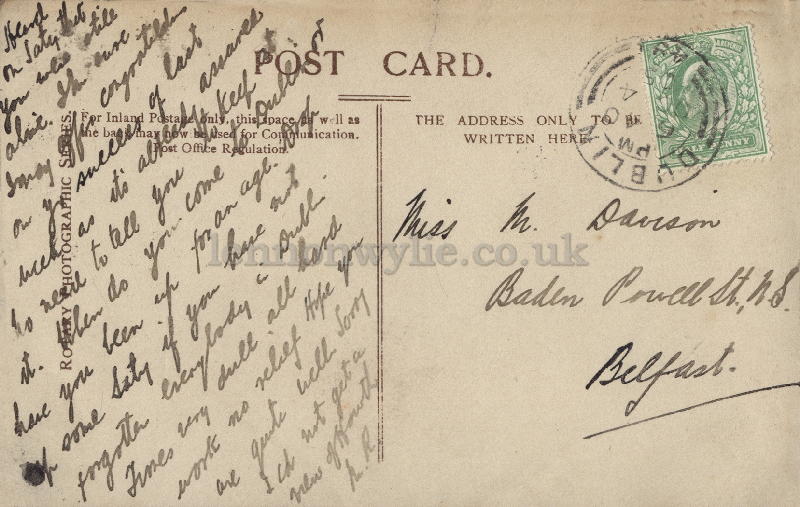 POST CARD.
For Inland Postage only, this space as well as
the back may now be used for Communication.
Post Office Regulation.
THE ADDRESS ONLY TO BE
WRITTEN HERE.
ROTARY PHOTOGRAPHIC SERIES.
DUBLIN
PM
HALFPENNY
Heard
on Saty that
you were still
alive. I'm sure
I may offer congratulations
on yr success of last
week as it's almost assured
No need to tell you keep at
it. When do you come to Dublin or
have you been up for an age. Drop
up some Saty if you have not
forgotten everybody in Dubl.
Times very dull all hard
work no relief Hope you
are quite well Sorry
I cd not get a
view of Howth
Miss M. Davison
Baden Powell St., N.S.
Belfast.
lennonwylie.co.uk